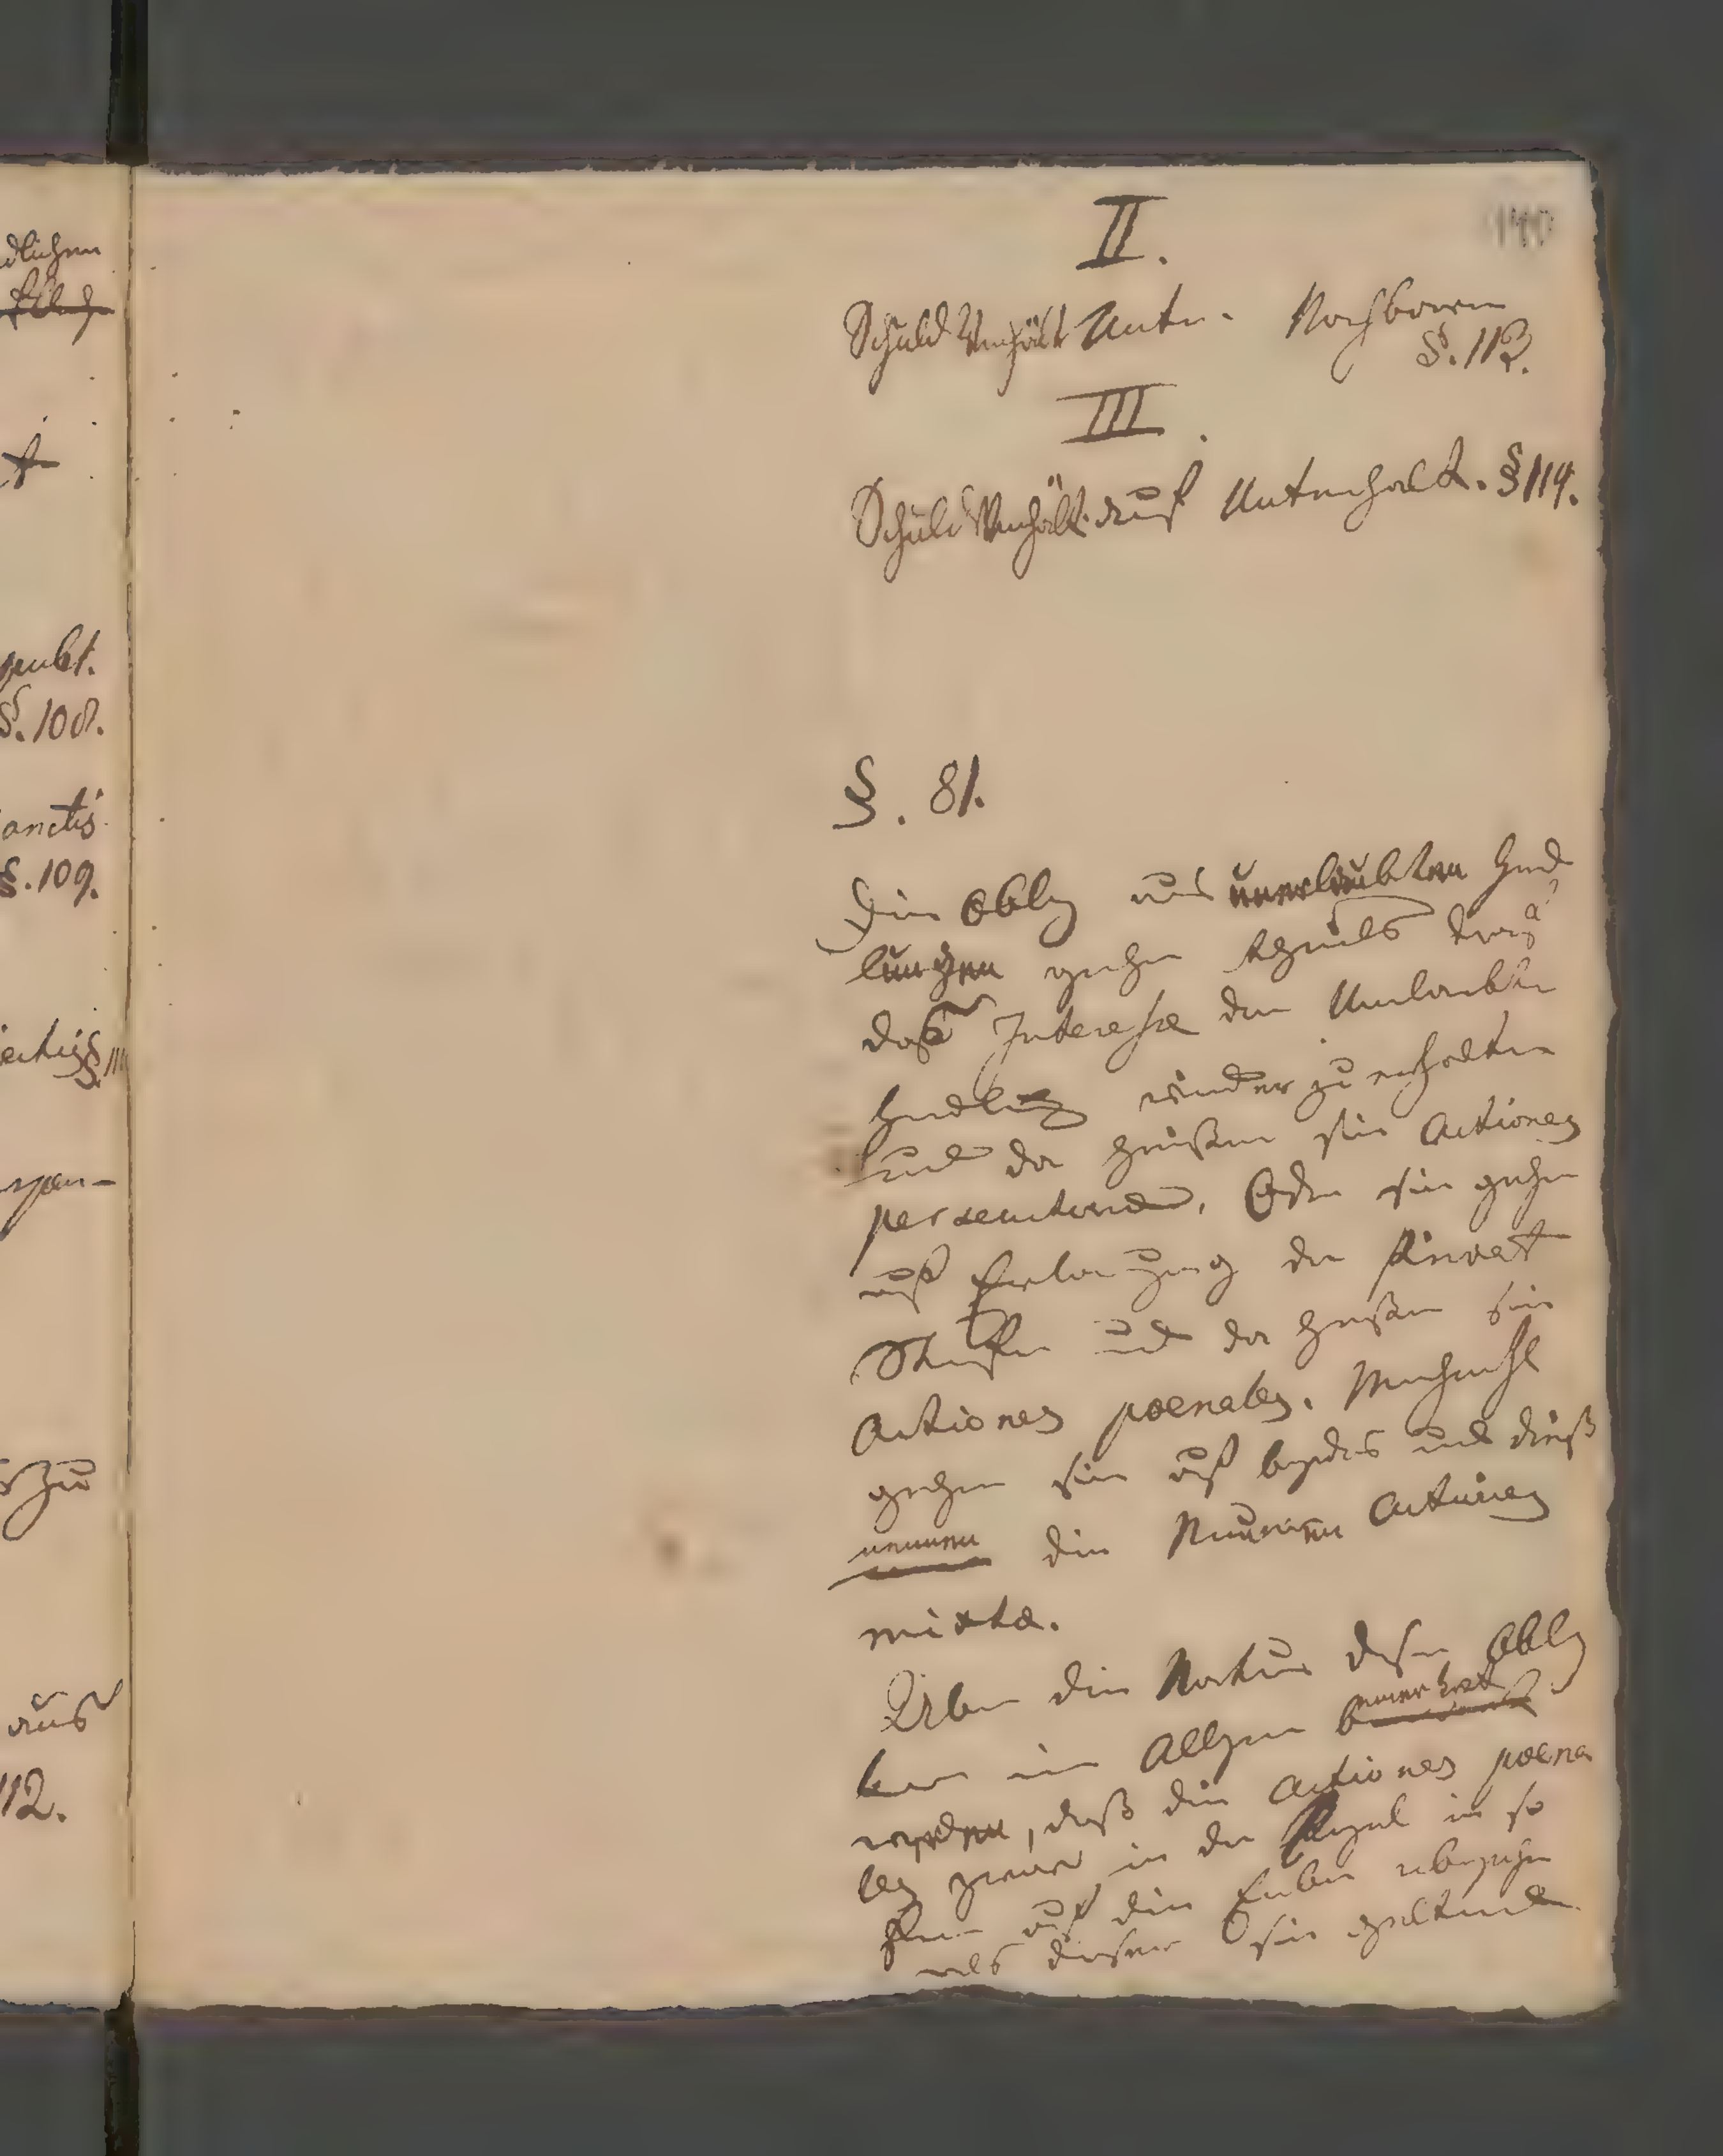 dlichen
publ.
§. 108.
anctis
§. 109.
zu
auß
112.
140
II.
Schuld Verhält Unter Nachbarn
§. 113.
III.
Schuld Verhält. auf Unterhalt. § 114.
§. 81.
Die Oblig aus unerlaubten Hnd
lungen gehen theils darauf
daß Interesse der Unerlaubten
Hndlung wieder zu erhalten
und da heißen sie Actiones
persecutoriae. Oder sie gehen
auf Erlangung der Privat
Strafen und da heißen sie
Actiones poenales. Mehrentheils
gehen sie auf beydes und dieß
nennen die Neueren Actiones
mixtae.
Über die Natur dieser Oblig
kann im Allgem bemerkt
werden, daß die actiones poena
les zwar in der Regel in so
fern auf die Erben übergehen
als dieser sie geltend